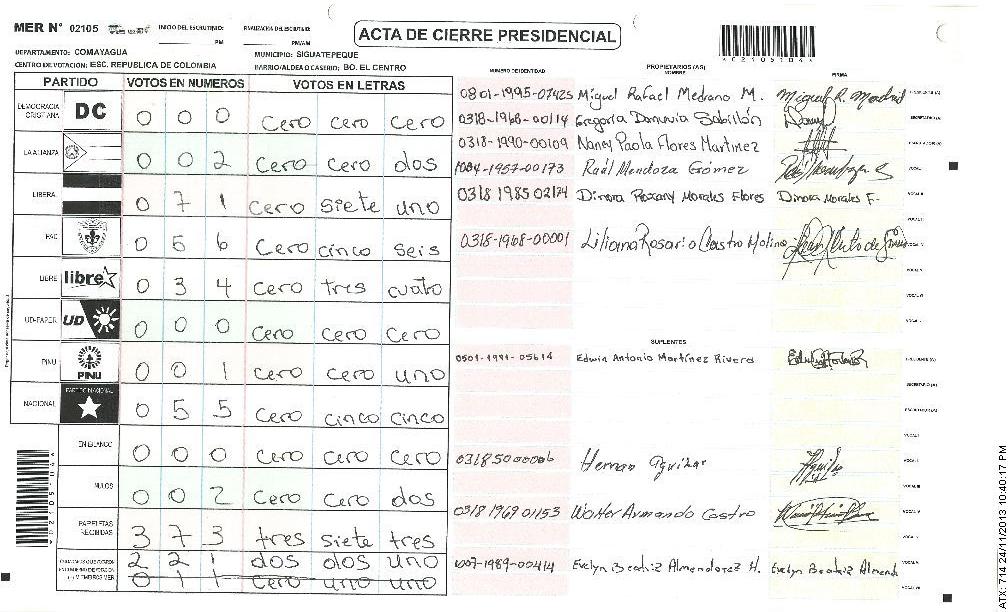 MER N° 02105 INICIO DEL ESCRUTINIO: FINALIZACION DEL ESCRUTINIO:
PM PM/AM
ACTA DE CIERRE PRESIDENCIAL
*0210510 4*
DEPARTAMENTO: COMAYAGUA MUNICIPIO: SIGUATEPEQUE
CENTRO DE VOTACION: ESC. REPUBLICA DE COLOMBIA BARRIO/ALDEA O CASERIO: BO. EL CENTRO
PARTIDO VOTOS EN NUMEROS VOTOS EN LETRAS
DEMOCRACIA CRISTIANA DC 0 0 0 Cero cero cero
LA ALIANZA 0 0 2 Cero cero dos
LIBERAL 0 7 1 Cero siete uno
PAC 0 5 6 Cero cinco seis
LIBRE libre 0 3 4 Cero tres cuatro
UD-FAPER UD 0 0 0 Cero cero cero
PINU PINU 0 0 1 Cero cero uno
NACIONAL PARTIDO NACIONAL 0 5 5 Cero cinco cinco
EN BLANCO 0 0 0 Cero cero cero
NULOS 0 0 2 Cero cero dos
PAPELETAS RECIBIDAS 3 7 3 tres siete tres
2 2 1 dos dos uno
0 1 1 cero uno uno
NUMERO DE IDENTIDAD PROPIETARIOS (AS) NOMBRE FIRMA
0801-1995-07425 Miguel Rafael Medrano M. Miguel R. Medrano
0318-1968-00114 Gregoria Sabillón
0318-1990-00109 Nancy Paola Flores Martinez
1004-1957-00173 Raúl Mendoza Gómez
0318 1985 02174 Dinora Roxany Morales Flores Dinora Morales F.
0318-1968-00001 Liliana Rosario Castro Molina
SUPLENTES
0501-1991-05614 Edwin Antonio Martínez Rivera
031850 00006 Hernan Aguilar
0318 1969 01153 Walter Armando Castro
1007-1989-00414 Evelyn Beatriz Almendarez H. Evelyn Beatriz Almenda
ATX: 714 24/11/2013 10:40:17 PM